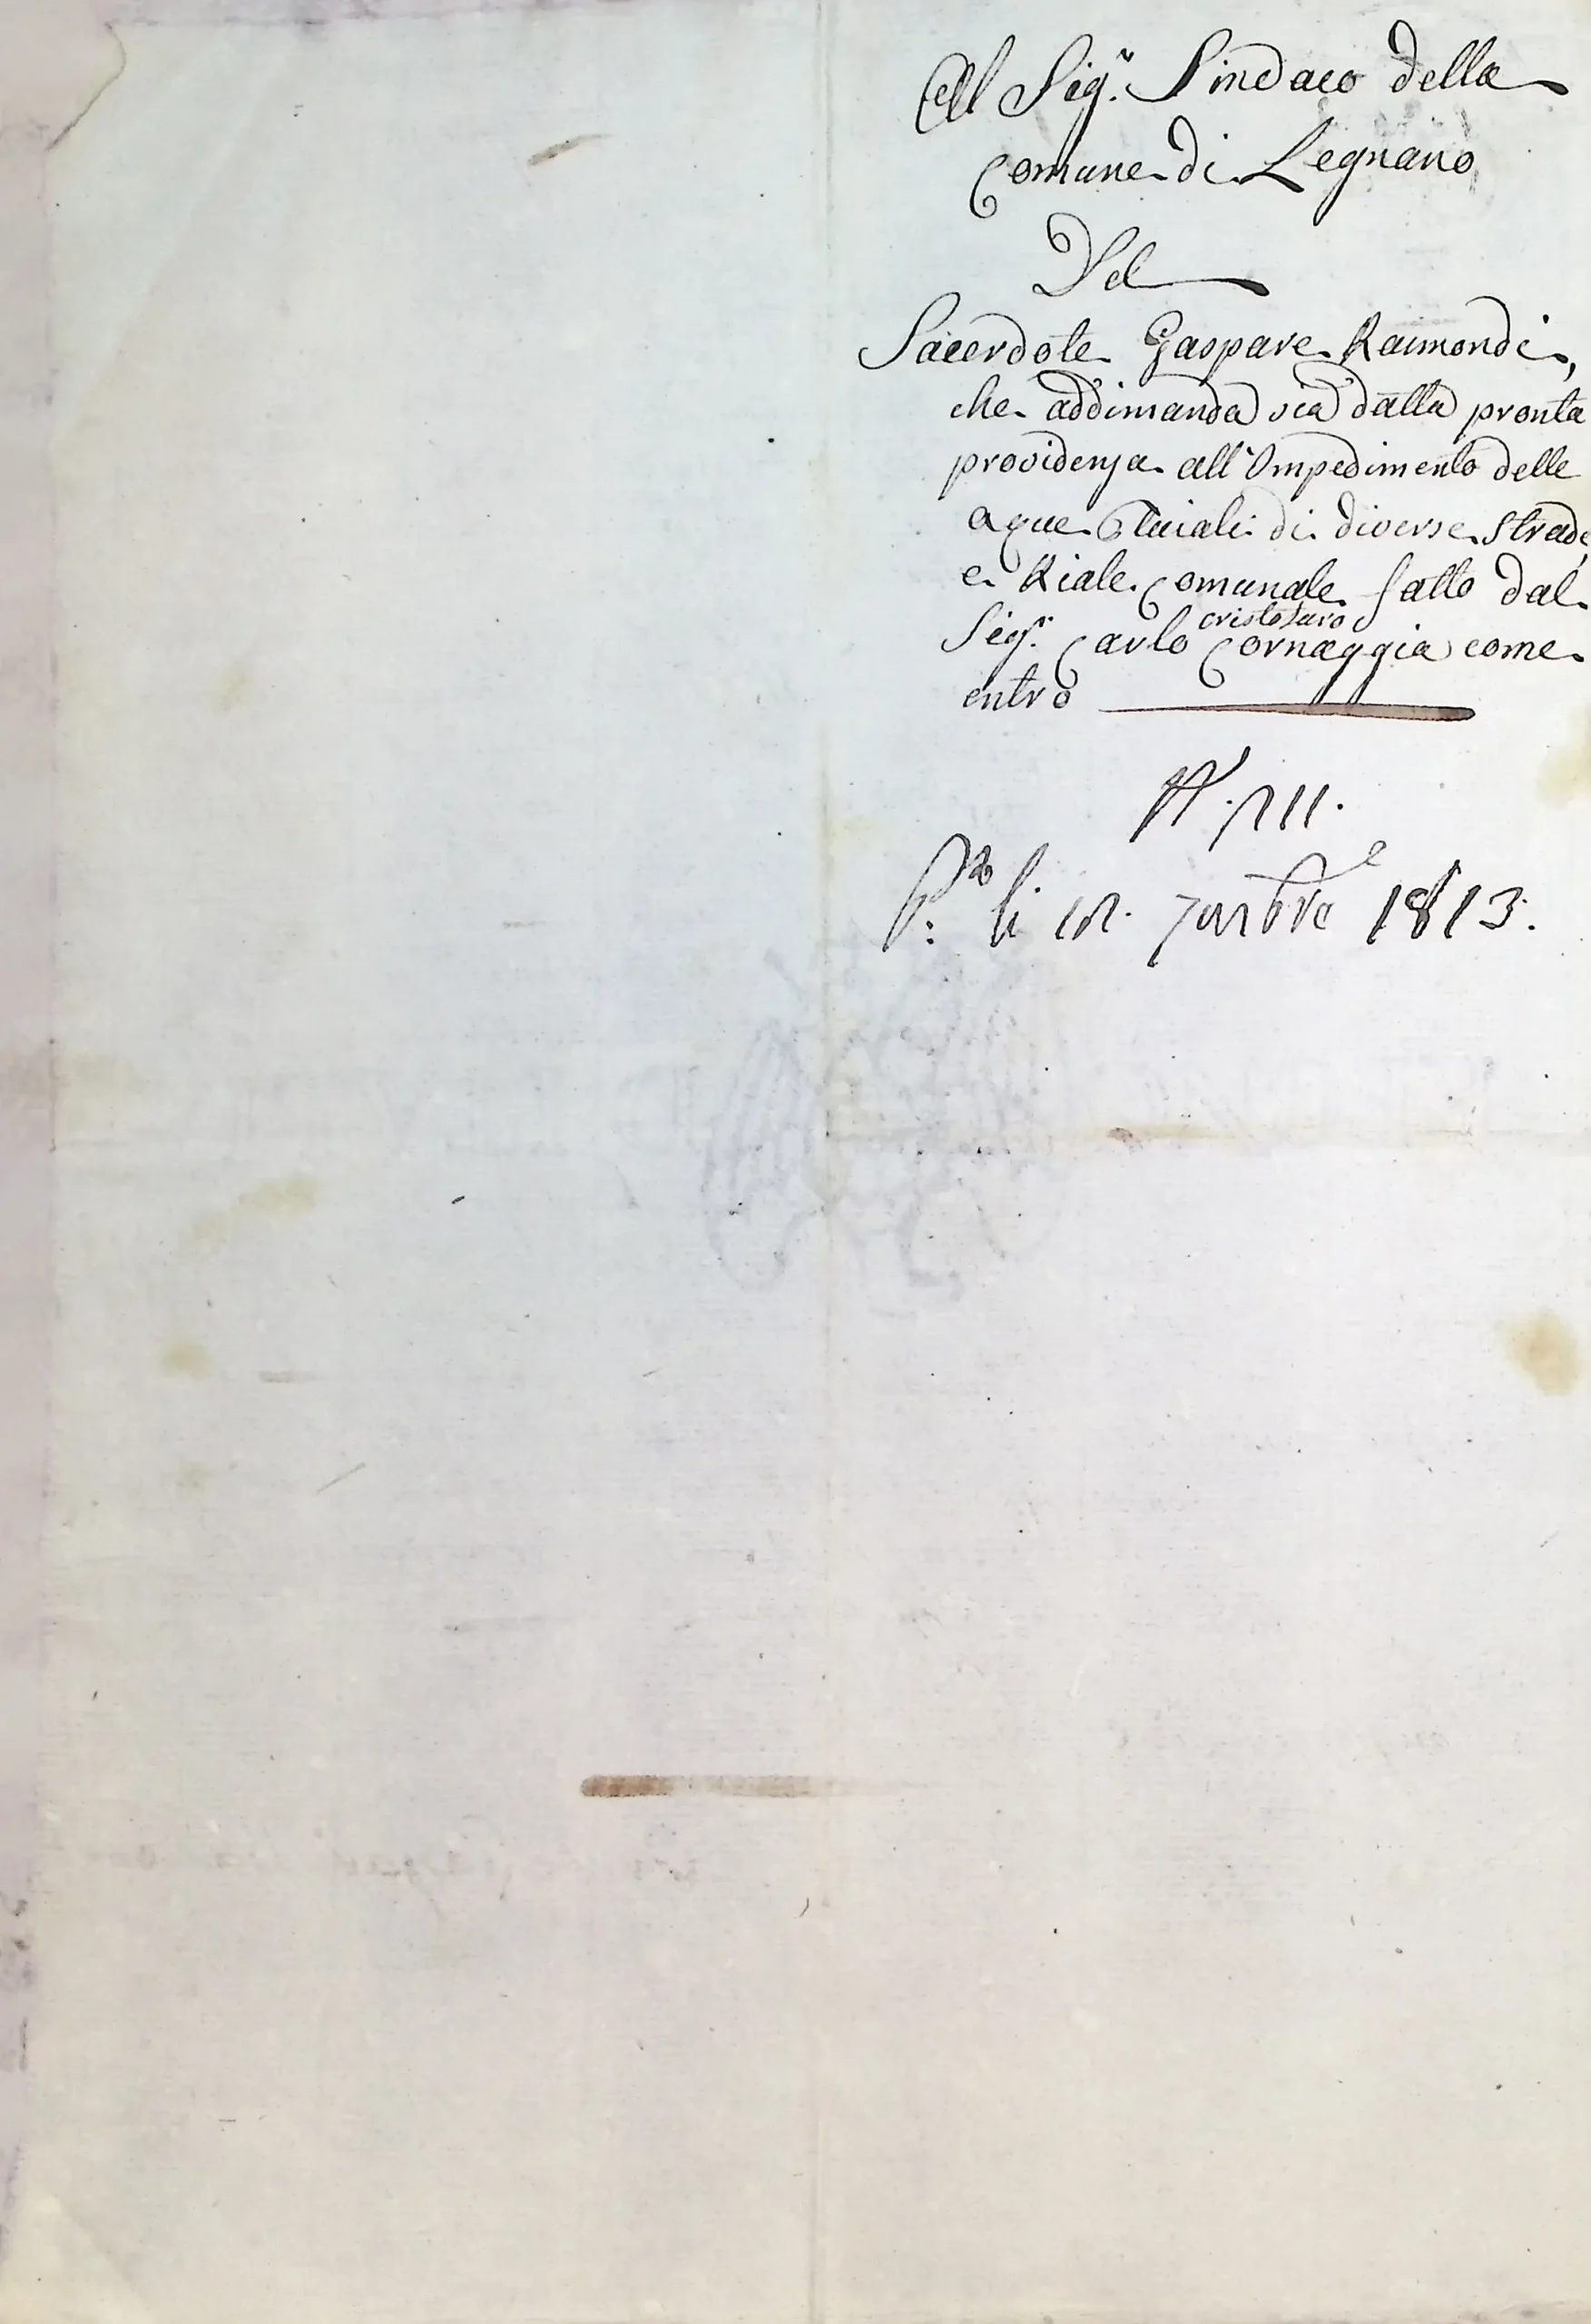 Al Sig.r Sindaco della
Comune di Legnano
Del
Sacerdote Gaspare Raimondi,
che addimanda sia datta pronta
providenza all'Impedimento delle
aque Pluiali di diverse strade,
e Riale Comunale fatto dal
Sig.r Carlo cristoforo Cornaggia come
entro
N.
P.ta li 7mbre 1813.